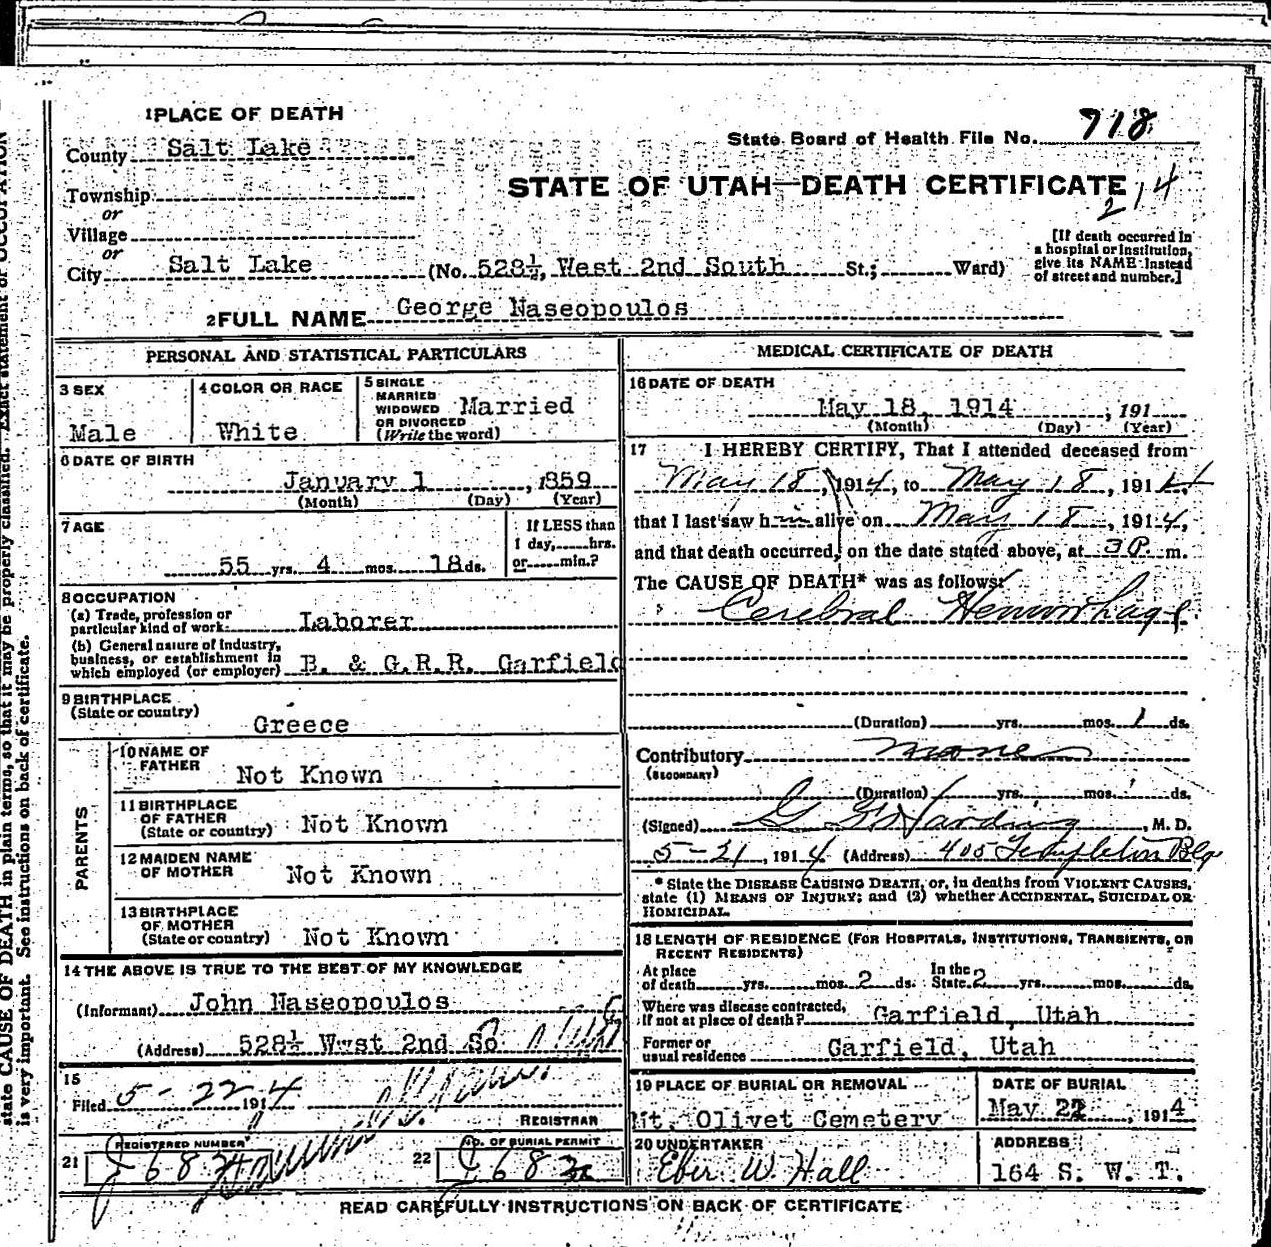 1 PLACE OF DEATH
County Salt Lake
Township
or
Village
or
City Salt Lake (No. 528½, West 2nd South St.; Ward)
State Board of Health File No. 718
STATE OF UTAH—DEATH CERTIFICATE
214
[If death occurred in
a hospital or institution,
give its NAME instead
of street and number.]
2 FULL NAME George Naseopoulos
PERSONAL AND STATISTICAL PARTICULARS
3 SEX
Male
4 COLOR OR RACE
White
5 SINGLE
MARRIED
WIDOWED
OR DIVORCED
(Write the word)
Married
6 DATE OF BIRTH
January 1, 1859
(Month) (Day) (Year)
7 AGE
55 yrs. 4 mos. 18 ds.
If LESS than
1 day, hrs.
or min.?
8 OCCUPATION
(a) Trade, profession or
particular kind of work Laborer
(b) General nature of industry,
business, or establishment in
which employed (or employer) B. & G.R.R. Garfield
9 BIRTHPLACE
(State or country)
Greece
PARENTS
10 NAME OF
FATHER
Not Known
11 BIRTHPLACE
OF FATHER
(State or country) Not Known
12 MAIDEN NAME
OF MOTHER
Not Known
13 BIRTHPLACE
OF MOTHER
(State or country) Not Known
14 THE ABOVE IS TRUE TO THE BEST OF MY KNOWLEDGE
(Informant) John Naseopoulos
(Address) 528½ Wwst 2nd So
15
Filed 5-22 1914
REGISTRAR
21 REGISTERED NUMBER
J 682
22 NO. OF BURIAL PERMIT
J 682
MEDICAL CERTIFICATE OF DEATH
16 DATE OF DEATH
May 18, 1914, 191
(Month) (Day) (Year)
17 I HEREBY CERTIFY, That I attended deceased from
May 18, 1914, to May 18, 1914,
that I last saw him alive on May 18, 1914,
and that death occurred, on the date stated above, at 3 P. m.
The CAUSE OF DEATH* was as follows:
Cerebral Hemorrhage
(Duration) yrs. mos. 1 ds.
Contributory none
(SECONDARY)
(Duration) yrs. mos. ds.
(Signed) G G Harding, M. D.
5-21, 1914 (Address) 405 Templeton Blg
* State the DISEASE CAUSING DEATH, or, in deaths from VIOLENT CAUSES,
state (1) MEANS OF INJURY; and (2) whether ACCIDENTAL, SUICIDAL OR
HOMICIDAL.
18 LENGTH OF RESIDENCE (FOR HOSPITALS, INSTITUTIONS, TRANSIENTS, OR
RECENT RESIDENTS)
At place
of death yrs. mos. 2 ds. In the
State 2 yrs. mos. ds.
Where was disease contracted,
if not at place of death? Garfield, Utah
Former or
usual residence Garfield, Utah
19 PLACE OF BURIAL OR REMOVAL
Mt. Olivet Cemetery
DATE OF BURIAL
May 22, 1914
20 UNDERTAKER
Eber W. Hall
ADDRESS
164 S. W. T.
READ CAREFULLY INSTRUCTIONS ON BACK OF CERTIFICATE
state CAUSE OF DEATH in plain terms, so that it may be properly classified. Exact statement of OCCUPATION
is very important. See instructions on back of certificate.